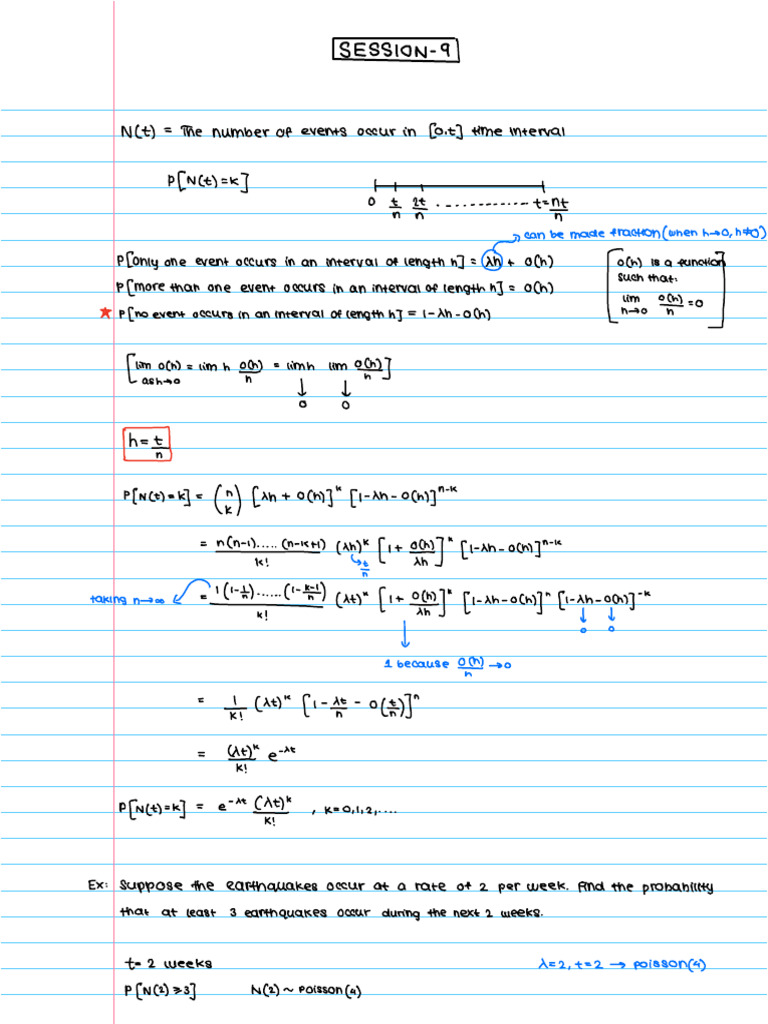 SESSION-9
N(t) = The number of events occur in [0,t] time interval
P[N(t)=k]
0 t/n 2t/n ............. t=nt/n
can be made fraction (when h→0, h≠0)
P[only one event occurs in an interval of length h] = λh + O(h)
P[more than one event occurs in an interval of length h] = O(h)
★ P[no event occurs in an interval of length h] = 1-λh-O(h)
[O(h) is a function
such that:
lim h→0 O(h)/n = 0]
[lim O(h) = lim h O(h)/n = lim h lim O(h)/n]
as h→0
↓ ↓
0 0
h = t/n
P[N(t)=k] = (n k) [λh + O(h)]^k [1-λh-O(h)]^n-k
= n(n-1).....(n-k+1)/k! (λh)^k [1 + O(h)/λh]^k [1-λh-O(h)]^n-k
↳ t/n
taking n→∞ = 1(1-1/n)......(1-k-1/n)/k! (λt)^k [1 + O(h)/λh]^k [1-λh-O(h)]^n [1-λh-O(h)]^-k
↓ ↓
0 0
↓
1 because O(h)/n → 0
= 1/k! (λt)^k [1 - λt/n - O(t/n)]^n
= (λt)^k/k! e^-λt
P[N(t)=k] = e^-λt (λt)^k/k! , k=0,1,2,....
Ex: Suppose the earthquakes occur at a rate of 2 per week. Find the probability
that at least 3 earthquakes occur during the next 2 weeks.
t= 2 weeks
λ=2, t=2 → poisson(4)
P[N(2)≥3] N(2) ~ Poisson(4)